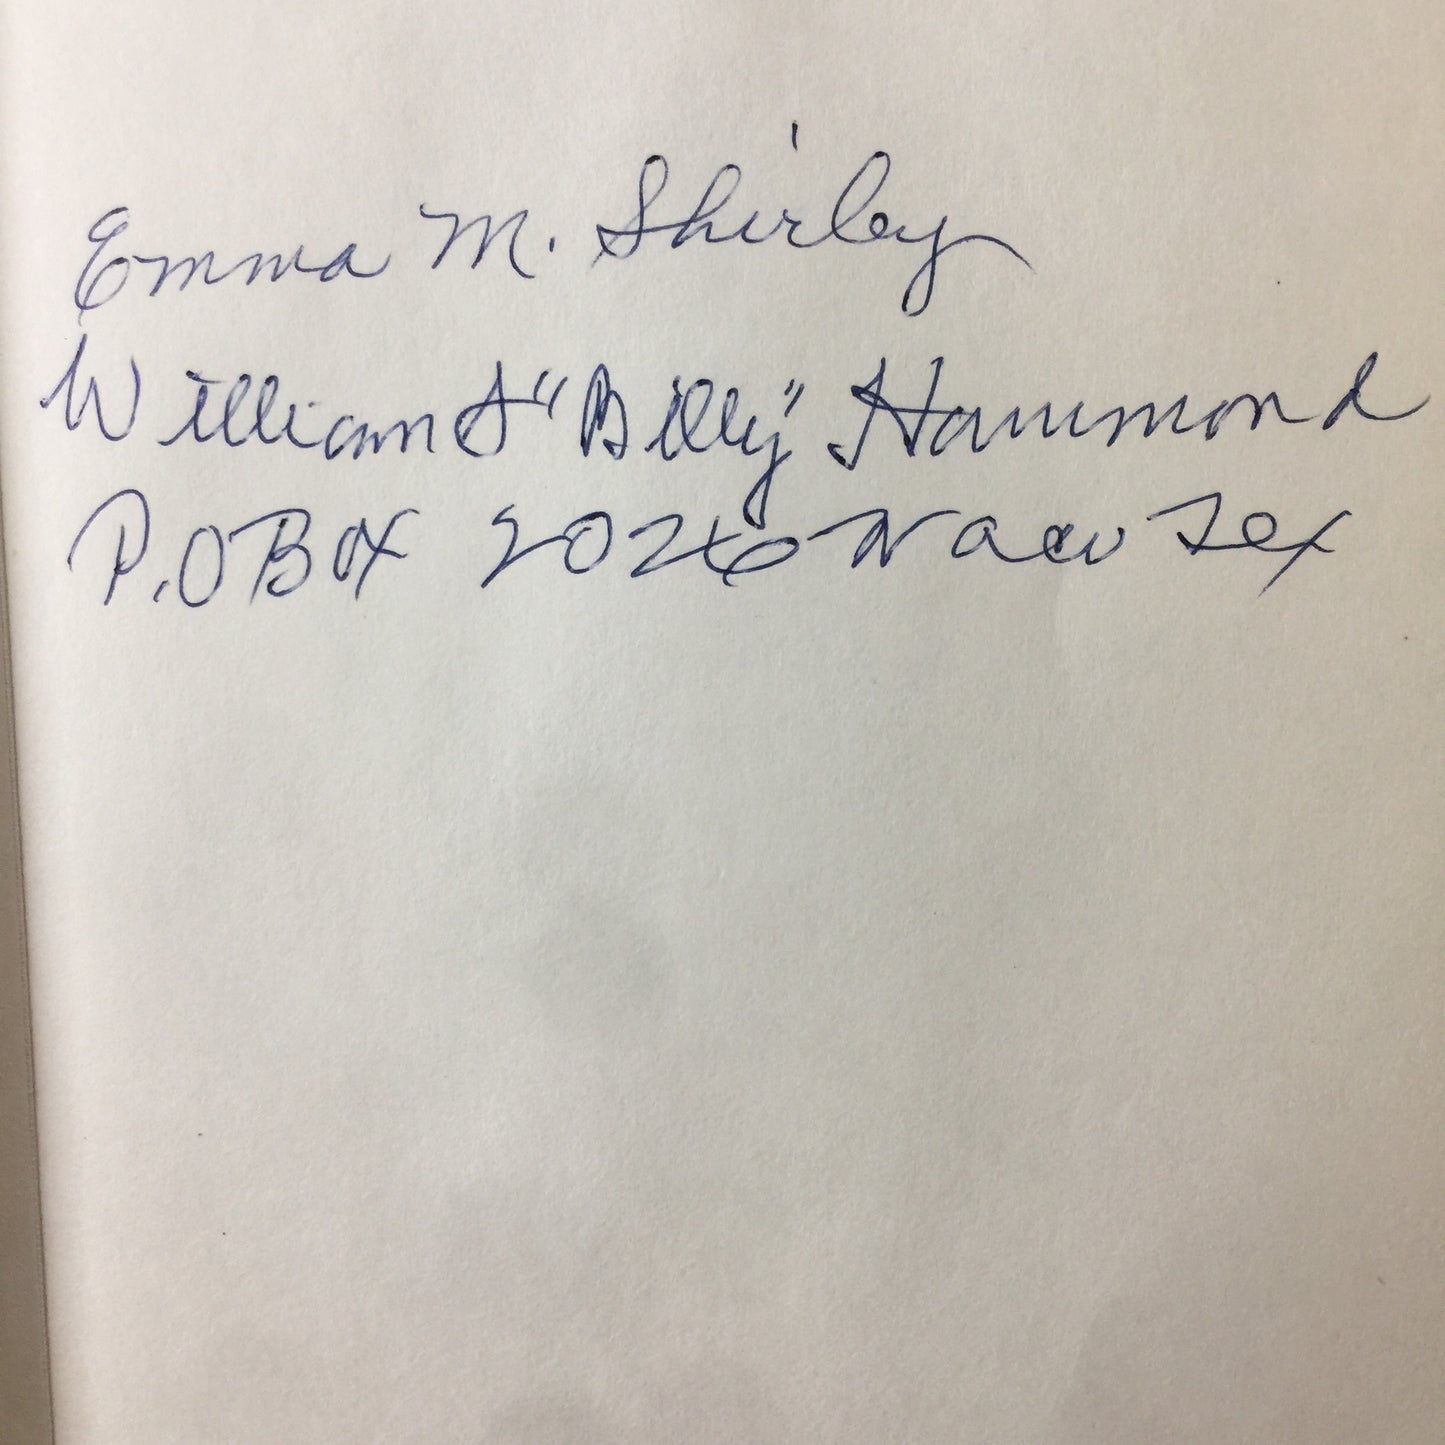 Emma M. Shirley
William S "Billy" Hammond
P.O Box 2026 Waco Tex